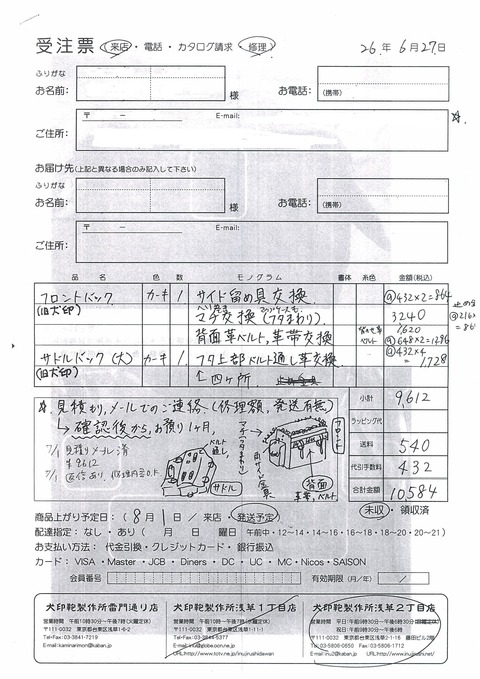 受注票 (来店・電話・カタログ請求・修理) 26年6月27日
ふりがな
お名前: 様 お電話: (携帯)
〒 － E-mail:
ご住所:
お届け先(上記と異なる場合のみ記入して下さい)
ふりがな
お名前: 様 お電話: (携帯)
〒 － E-mail:
ご住所:
品名 色 数 モノグラム 書体 糸色 金額(税込)
フロントバック カーキ 1 サイド留め具交換 @432×2=864
(旧犬印) マチ交換(フタまわり) 3240
背面革ベルト,革帯交換 @648×2=1296
サドルバック(大) カーキ 1 フタ上部ベルト通し革交換 @432×4
(旧犬印) ↑四ヶ所 =1728
見積もり,メールでのご連絡、(修理額,発送有無)
↳確認後から、お預り1ヶ月,
小計 9,612
ラッピング代
送料 540
代引手数料 432
合計金額 10584
7/1 見積りメール済
¥9612
7/1 返信あり、修理内容O.K
ベルト通し,
サドル
フロント
背面
革帯,ベルト
商品上がり予定日:(8月1日/来店・発送予定) 未収・領収済
配達指定: なし・あり( 月 日 曜日 午前中・12〜14・14〜16・16〜18・18〜20・20〜21)
お支払い方法: 代金引換・クレジットカード・銀行振込
カード: VISA・Master・JCB・Diners・DC・UC・MC・Nicos・SAISON
会員番号 有効期限(月/年) /
犬印鞄製作所雷門通り店
営業時間 午前10時30分〜午後7時(火曜定休)
〒111-0032 東京都台東区浅草1-6-2
Tel・Fax:03-3841-7219
E-mail:kaminarimon@kaban.jp
犬印鞄製作所浅草1丁目店
〒111-0032 東京都台東区浅草1-11-1
URL:http://www.totv.ne.jp/inujirushidawan
犬印鞄製作所浅草2丁目店
営業時間 平日:午前9時30分〜午後6時30分(火曜定休)
祝日:午前9時30分〜午後6時
Tel:03-5806-0650 Fax:03-5806-1712
E-mail:inu2@kaban.jp